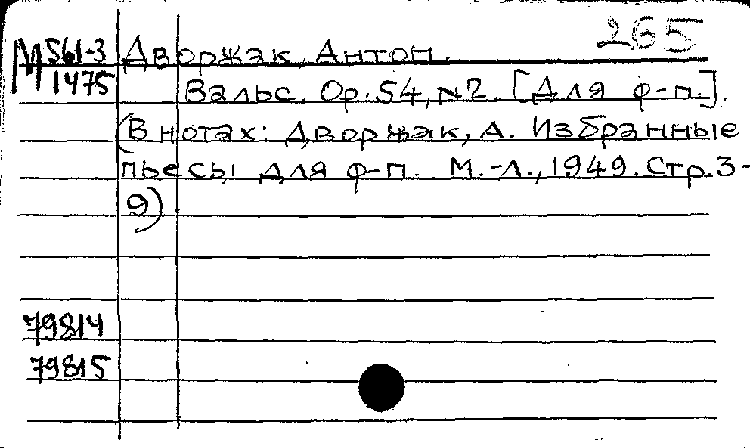 265
М 561-3
1475
Дворжак, Антон.
Вальс. Op. 54, №2. [Для ф-п.].
(В нотах: Дворжак, А. Избранные
пьесы для ф-п. М.-Л., 1949. Стр. 3-
9)
79814
79815